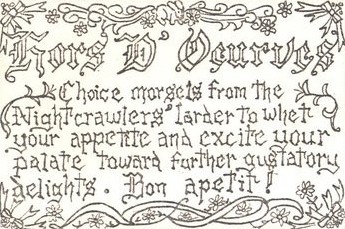 Hors D' Oeurves
Choice morsels from the
Nightcrawlers' larder to whet
your appetite and excite your
palate toward further gustatory
delights. Bon apetit!